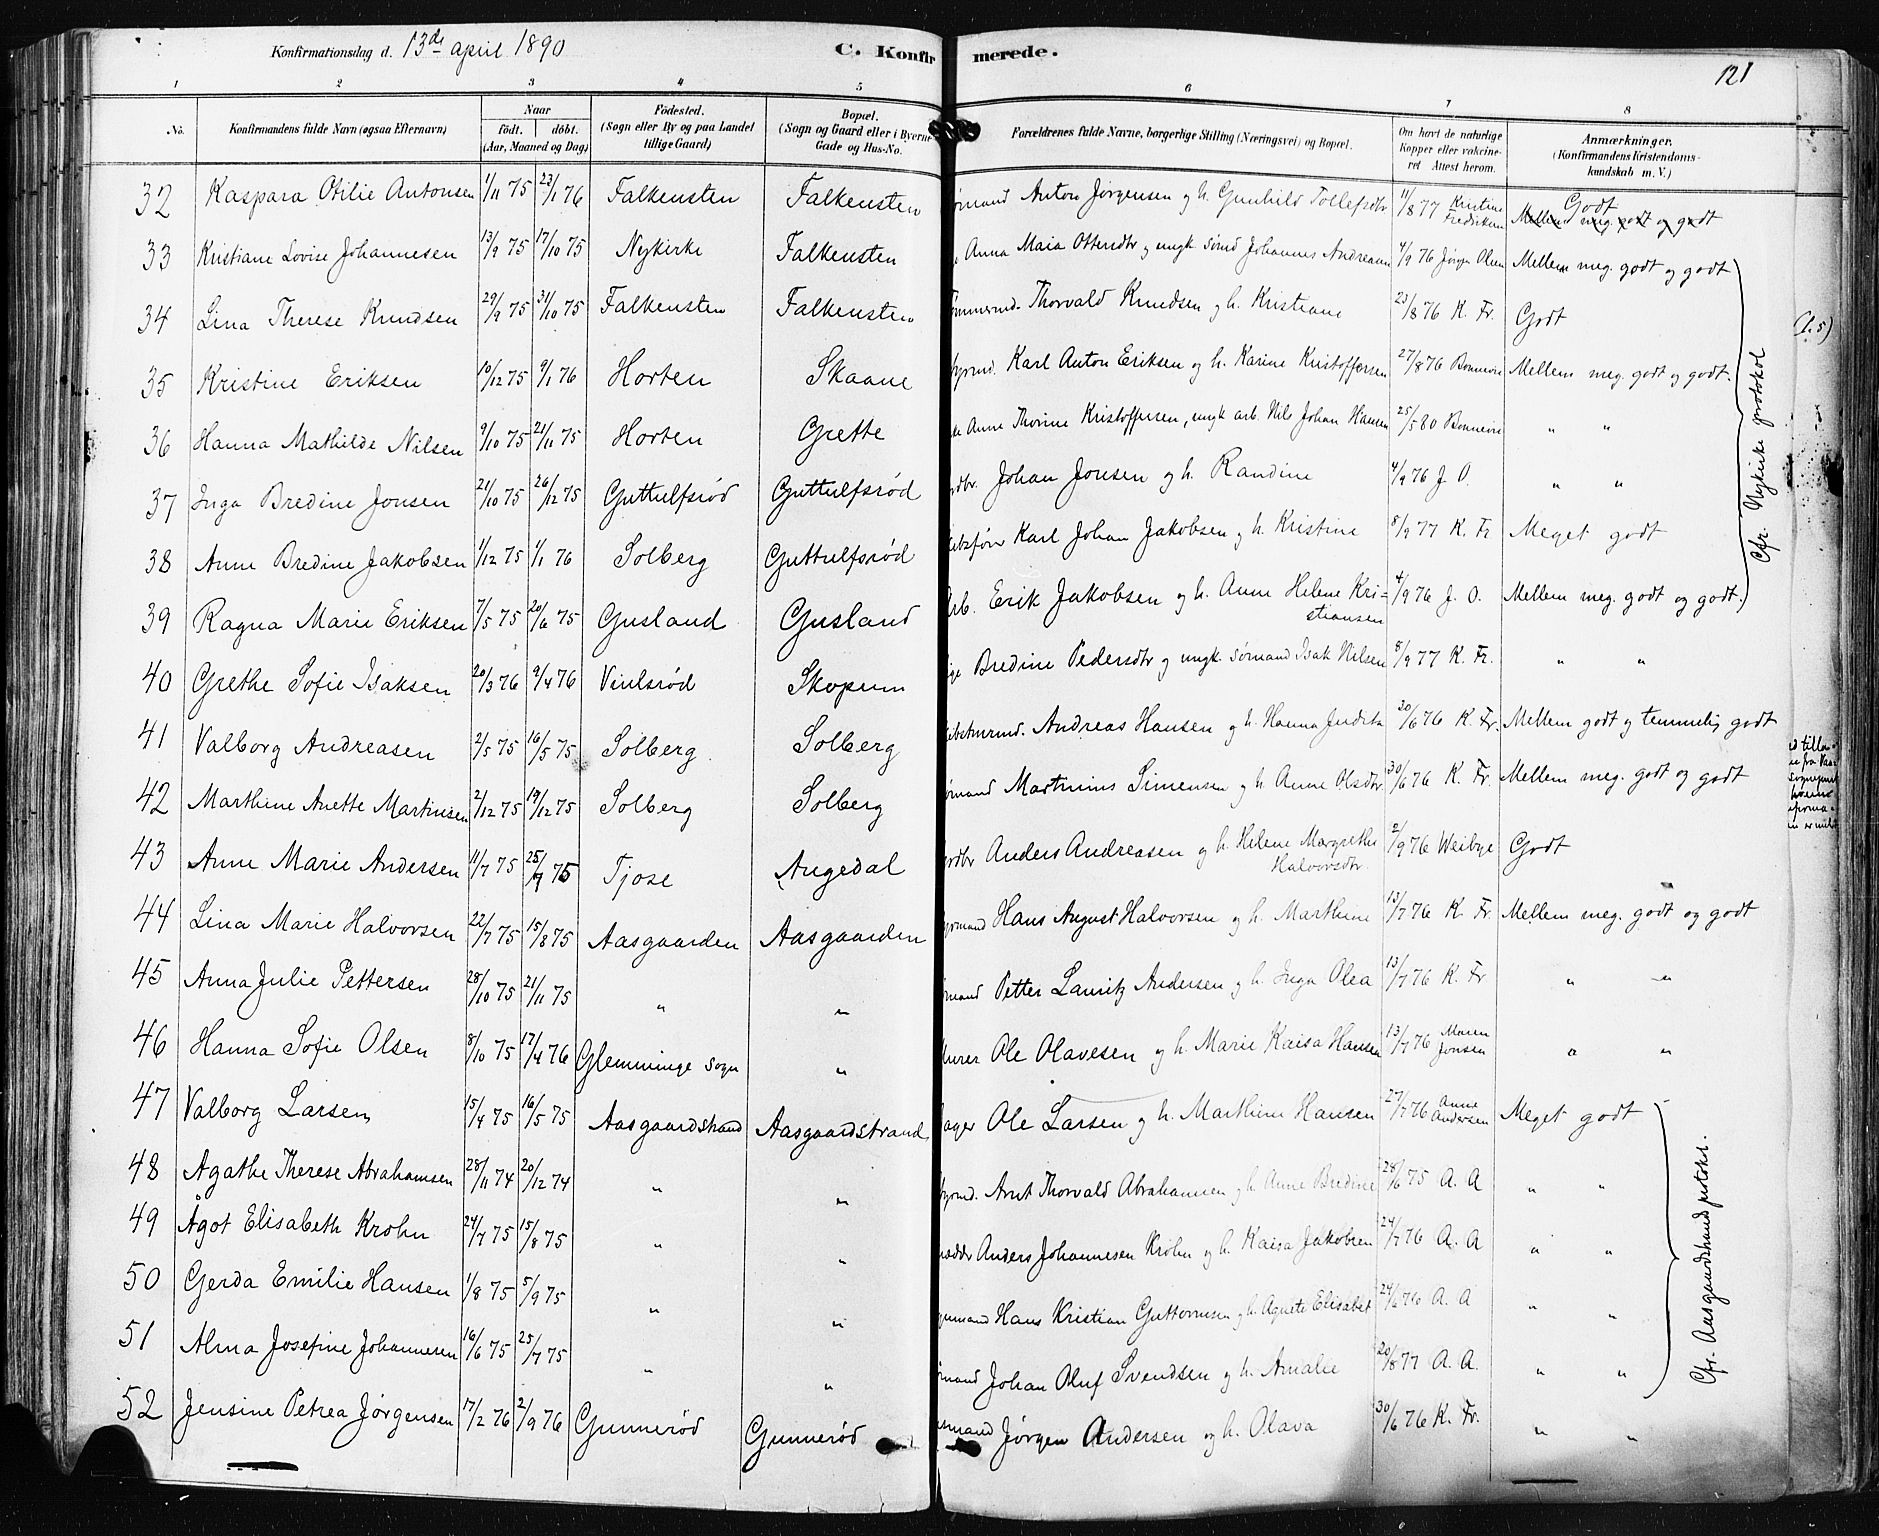 Konfirmationsdag d. 13de april 1890
C. Konfirmerede.
121
1 2 3 4 5 6 7 8
No.
Konfirmandens fulde Navn (ogsaa Efternavn)
Naar
født. døbt.
(Aar, Maaned og Dag)
Fødested.
(Sogn eller By og paa Landet
tillige Gaard)
Bopæl.
(Sogn og Gaard eller i Byerne
Gade og Hus-No.
Forældrenes fulde Navne, borgerlige Stilling (Næringsvei) og Bopæl.
Om havt de naturlige
Kopper eller vakcine-
ret Attest herom.
Anmærkninger.
(Konfirmandens Kristendoms-
kundskab m. V.)
32 Kaspara Otilie Antonsen 1/11 75 23/1 76 Falkensten Falkensten ømand Anton Jørgensen og h. Gunhild Tollefsdtr 11/8 77 Kristine Fredriksen Godt Mellem meg. godt og godt
33 Kristiane Lovise Johannesen 13/9 75 17/10 75 Nykirke Falkensten Anna Maia Ottersdtr og ungk. sømd Johannes Andreasen 4/9 76 Jørgen Olsen Mellem meg. godt og godt
34 Lina Therese Knudsen 29/9 75 31/10 75 Falkensten Falkensten ømmermd. Thorvald Knudsen og h. Kristiane 23/8 76 K. Fr. Godt
35 Kristine Eriksen 10/12 75 9/1 76 Horten Skaane fyrmd. Karl Anton Eriksen og h. Karine Kristoffersen 27/8 76 Bonnevie Mellem meg. godt og godt.
36 Hanna Mathilde Nilsen 9/10 75 21/11 75 Horten Grette Anne Thorine Kristoffersen, ungk. arb. Nils Johan Hansen 25/5 80 Bonnevie " "
37 Inga Bredine Jonsen 21/10 75 26/12 75 Guttulfsrød Guttulfsrød rdbr. Johan Jonsen og h. Randine 4/9 76 J. O. " "
38 Anne Bredine Jakobsen 1/12 75 1/1 76 Solberg Guttulfsrød Karl Johan Jakobsen og h. Kristine 8/9 77 K. Fr Meget godt
39 Ragna Marie Eriksen 7/5 75 20/6 75 Gusland Gusland Arb. Erik Jakobsen og h. Anne Helene Kri-
stiansen 4/9 76 J. O. Mellem meg. godt og godt.
Cfr. Nykirke protokol
40 Grethe Sofie Isaksen 20/3 76 9/4 76 Viulsrød Skopum ige Bredine Pedersdtr og ungk. sømand Isak Nilsen 8/9 77 K. Fr. " "
41 Valborg Andreasen 2/5 75 16/5 75 Solberg Solberg Andreas Hansen og h. Hanna Judita 30/6 76 K. Fr. Mellem godt og temmelig godt
42 Marthine Anette Martinsen 2/12 75 19/12 75 Solberg Solberg ømand Martinius Simensen og h. Anne Olsdtr 30/6 76 K. Fr. Mellem meg. godt og godt
43 Anne Marie Andersen 11/7 75 25/7 75 Tjose Augedal rdbr Anders Andreasen og h. Helene Margrethe
Halvorsdtr 2/9 76 Weibye Godt
44 Lina Marie Halvorsen 22/7 75 15/8 75 Aasgaarden Aasgaarden ømand Hans August Halvorsen og h. Marthine 13/7 76 K. Fr. Mellem meg. godt og godt
45 Anna Julie Pettersen 28/10 75 21/11 75 " " ømand Petter Lauritz Andersen og h. Inga Olea 13/7 76 K. Fr " "
46 Hanna Sofie Olsen 8/10 75 17/4 76 Glemminge sogn " Murer Ole Olavesen og h. Marie Kaisa Hansen 13/7 76 Maren Jonsen " "
47 Valborg Larsen 15/4 75 16/5 75 Aasgaardstrand Aasgaardstrand ager Ole Larsen og h. Marthine Hansen 27/7 76 Anne Andersen Meget godt
48 Agathe Therese Abrahamsen 28/11 74 20/12 74 " " fyrmd. Arnt Thorvald Abrahamsen og h. Anne Bredine 28/6 75 A. A " "
49 Ågot Elisabeth Krohn 24/7 75 15/8 75 " " rædder Anders Johannesen Krohn og h. Kaisa Jakobsen 24/7 76 A. A " "
50 Gerda Emilie Hansen 1/8 75 5/9 75 " " Hans Kristian Guttormsen og h. Agnete Elisabet 24/6 76 A. A " "
51 Alma Josefine Johannesen 16/6 75 25/7 75 " " ømand Johan Oluf Svendsen og h. Amalie 20/8 77 A. A. " "
Cfr. Aasgaardstrand protokol.
52 Jensine Petrea Jørgensen 17/2 76 2/9 76 Gunnerød Gunnerød usmand Jørgen Andersen og h. Olava 30/6 76 K. Fr. " "